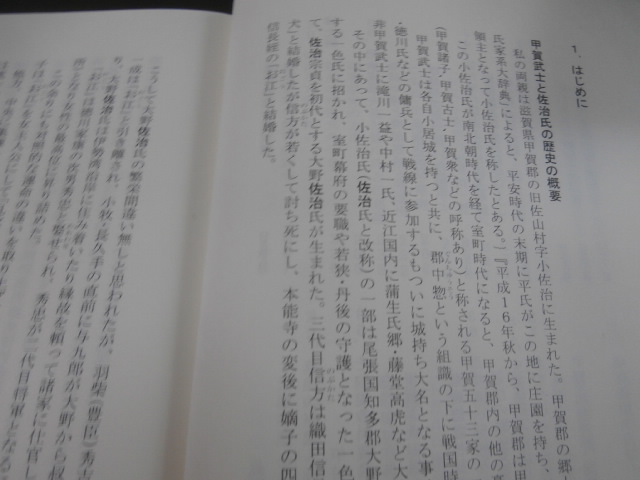 1．はじめに
甲賀武士と佐治氏の歴史の概要
私の両親は滋賀県甲賀郡の旧佐山村字小佐治に生まれた。甲賀郡の郷土
氏家系大辞典』によると、平安時代の末期に平氏がこの地に庄園を持ち、
領主となって小佐治氏を称したとある。』『平成16年秋から、甲賀郡は甲
この小佐治氏が南北朝時代を経て室町時代になると、甲賀郡内の他の豪
（甲賀諸子・甲賀古士・甲賀衆などの呼称あり）と称される甲賀五十三家の一
甲賀武士は各自小居城を持つと共に、郡中惣という組織の下に戦国時
・徳川氏などの傭兵として戦線に参加するもついに城持ち大名となる事
非甲賀武士に滝川一益や中村一氏、近江国内に蒲生氏郷・藤堂高虎など大
その中にあって、小佐治氏（佐治氏と改称）の一部は尾張国知多郡大野
する一色氏に招かれ、室町幕府の要職や若狭・丹後の守護となった一色
て、佐治宗貞を初代とする大野佐治氏が生まれた。三代目信方は織田信
犬」と結婚したが信方が若くして討ち死にし、本能寺の変後に嫡子の四
信長姪の「お江」と結婚した。
こうして大野佐治氏の繁栄間違い無しと思われたが、羽柴（豊臣）秀吉
一成は「お江」と引き離され、小牧・長久手の直前に与九郎が大野から
り、大野佐治氏は伊勢湾沿岸に住み着いたり縁故を頼って諸家に仕官し
「お江」は徳川家康の次男秀忠と娶せられ、秀忠が二代目将軍となる
期となり女性の最高位に昇り詰めた。
このあまりにも対照的な運命の違いを取り